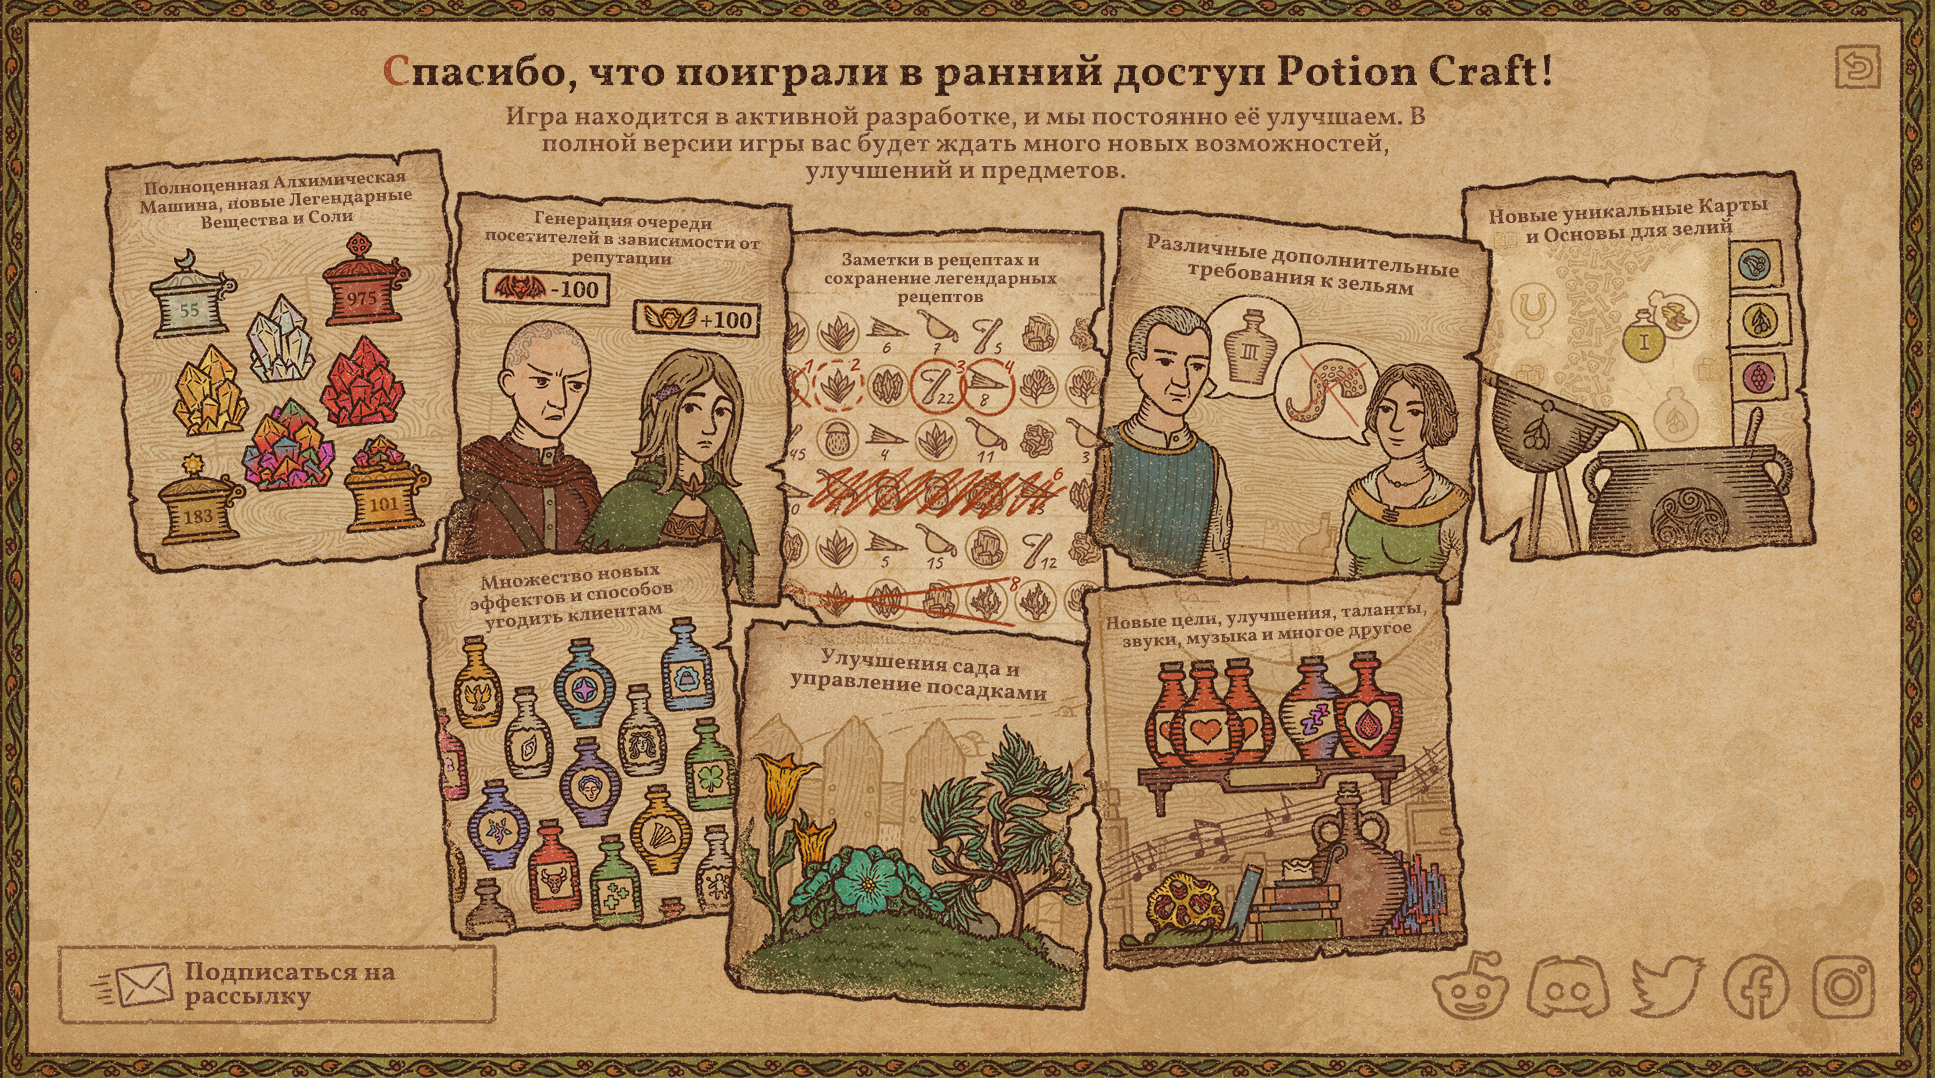 Спасибо, что поиграли в ранний доступ Potion Craft!
Игра находится в активной разработке, и мы постоянно её улучшаем. В
полной версии игры вас будет ждать много новых возможностей,
улучшений и предметов.
Полноценная Алхимическая
Машина, новые Легендарные
Вещества и Соли
55
975
183
101
Генерация очереди
посетителей в зависимости от
репутации
-100
+100
Заметки в рецептах и
сохранение легендарных
рецептов
6
7
5
1
2
3
4
22
8
45
4
11
3
6
0
5
15
12
8
Различные дополнительные
требования к зельям
III
Новые уникальные Карты
и Основы для зелий
I
Множество новых
эффектов и способов
угодить клиентам
Улучшения сада и
управление посадками
Новые цели, улучшения, таланты,
звуки, музыка и многое другое
Подписаться на
рассылку